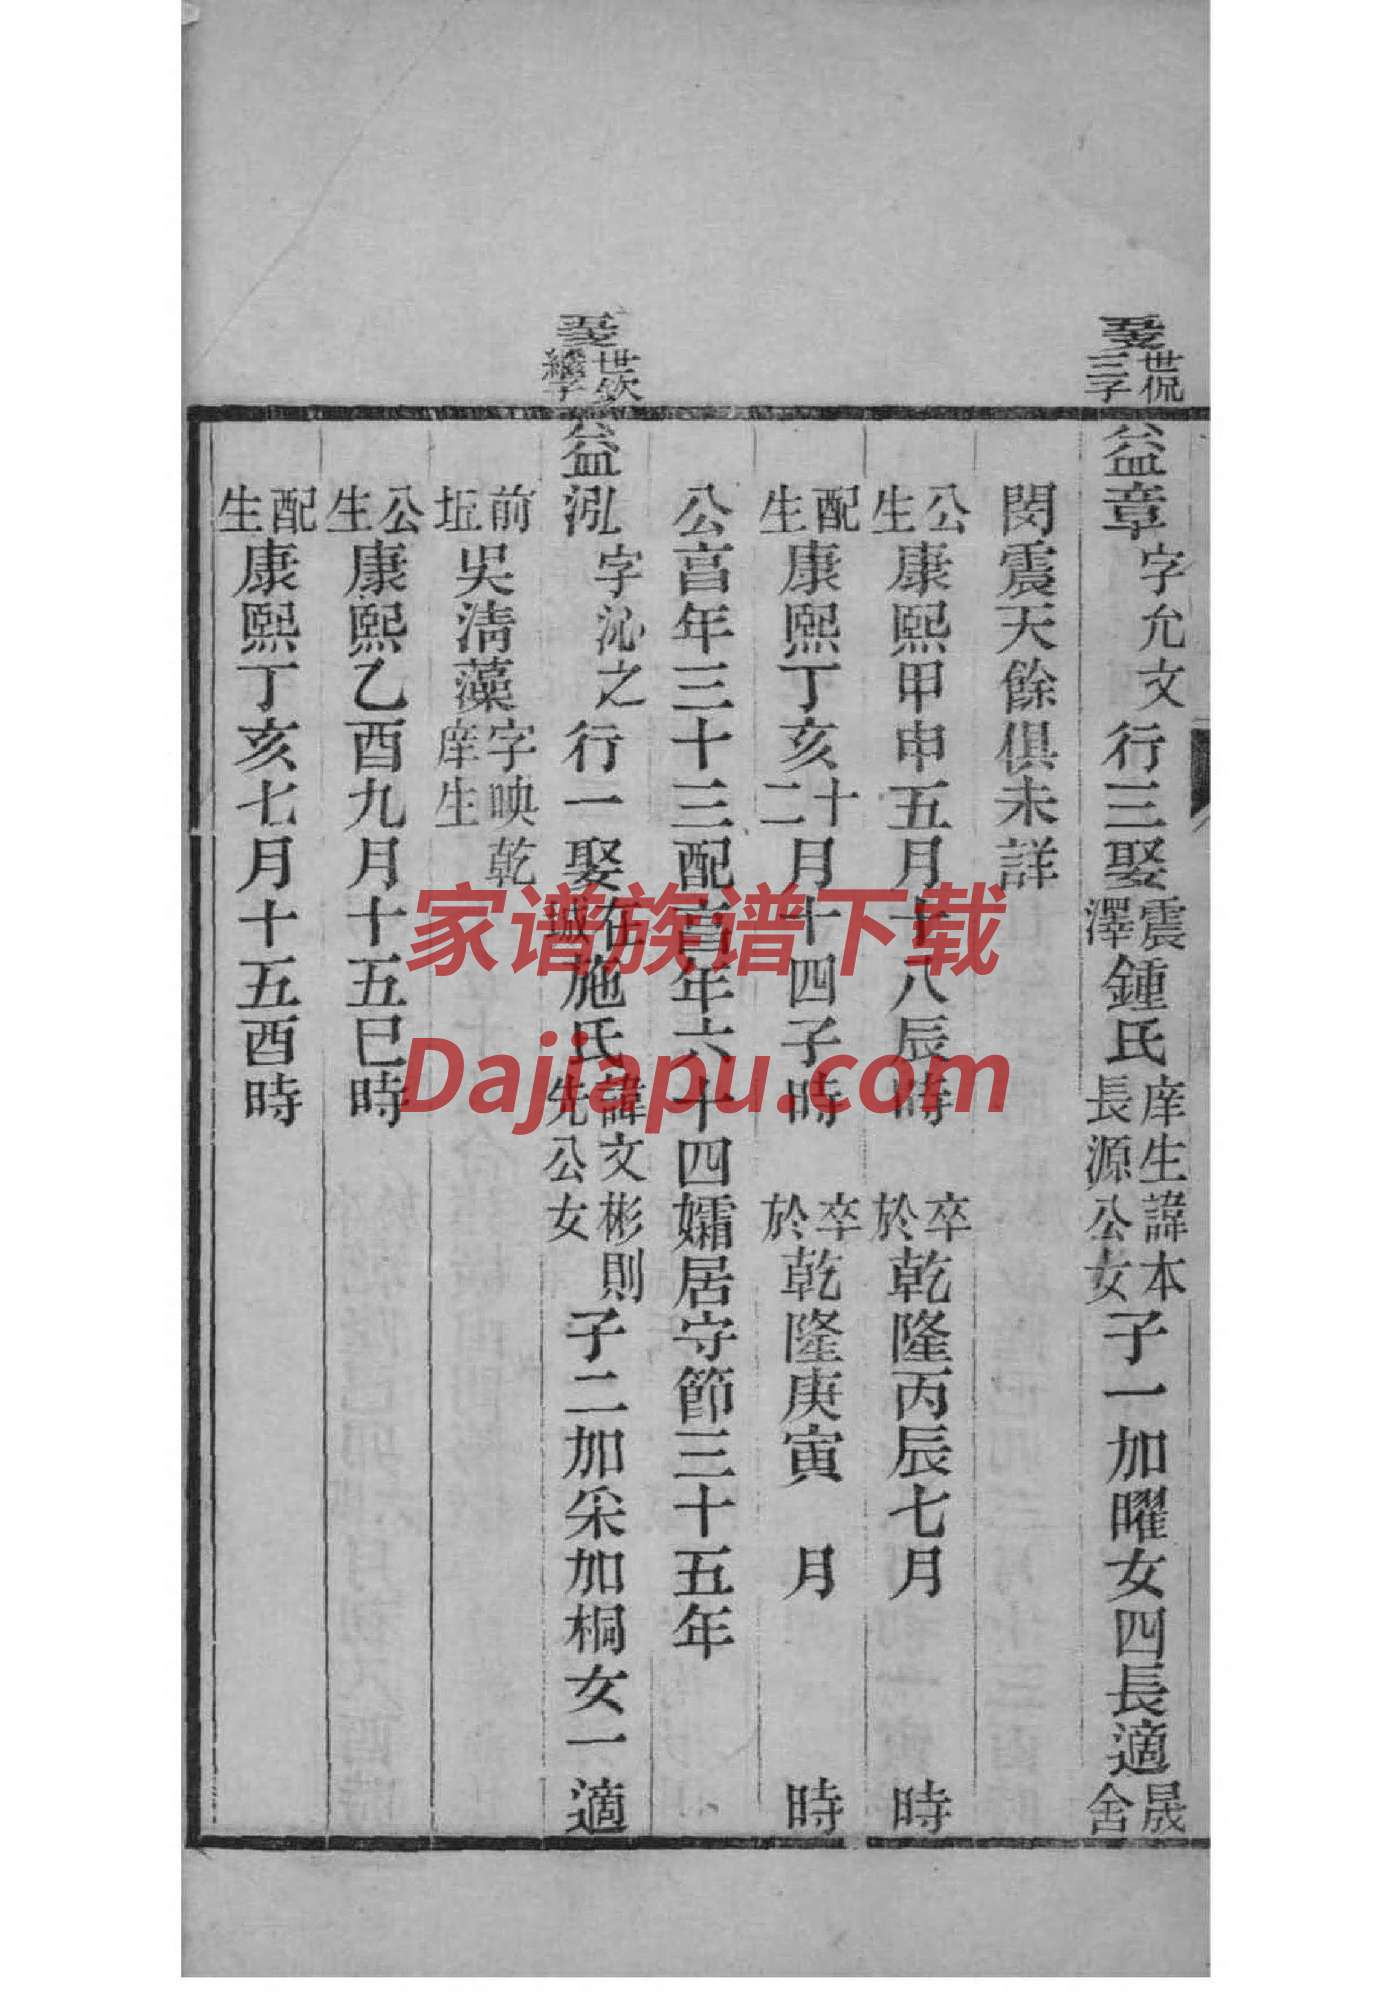 世侃三子
益章字允文行三娶震澤鍾氏庠生諱本長源公女子一加曜女四長適晟舍
閔震天餘俱未詳
公生康熙甲申五月十八辰時 卒於乾隆丙辰七月 時
配生康熙丁亥十二月十四子時 卒於乾隆庚寅 月 時
公享年三十三配享年六十四孀居守節三十五年
世欽繼子
益泓字沁之行一娶在城施氏諱文彬則先公女子二加采加桐女一適
前坵吳清藻字映乾庠生
公生康熙乙酉九月十五巳時
配生康熙丁亥七月十五酉時
家谱族谱下载
Dajiapu.com